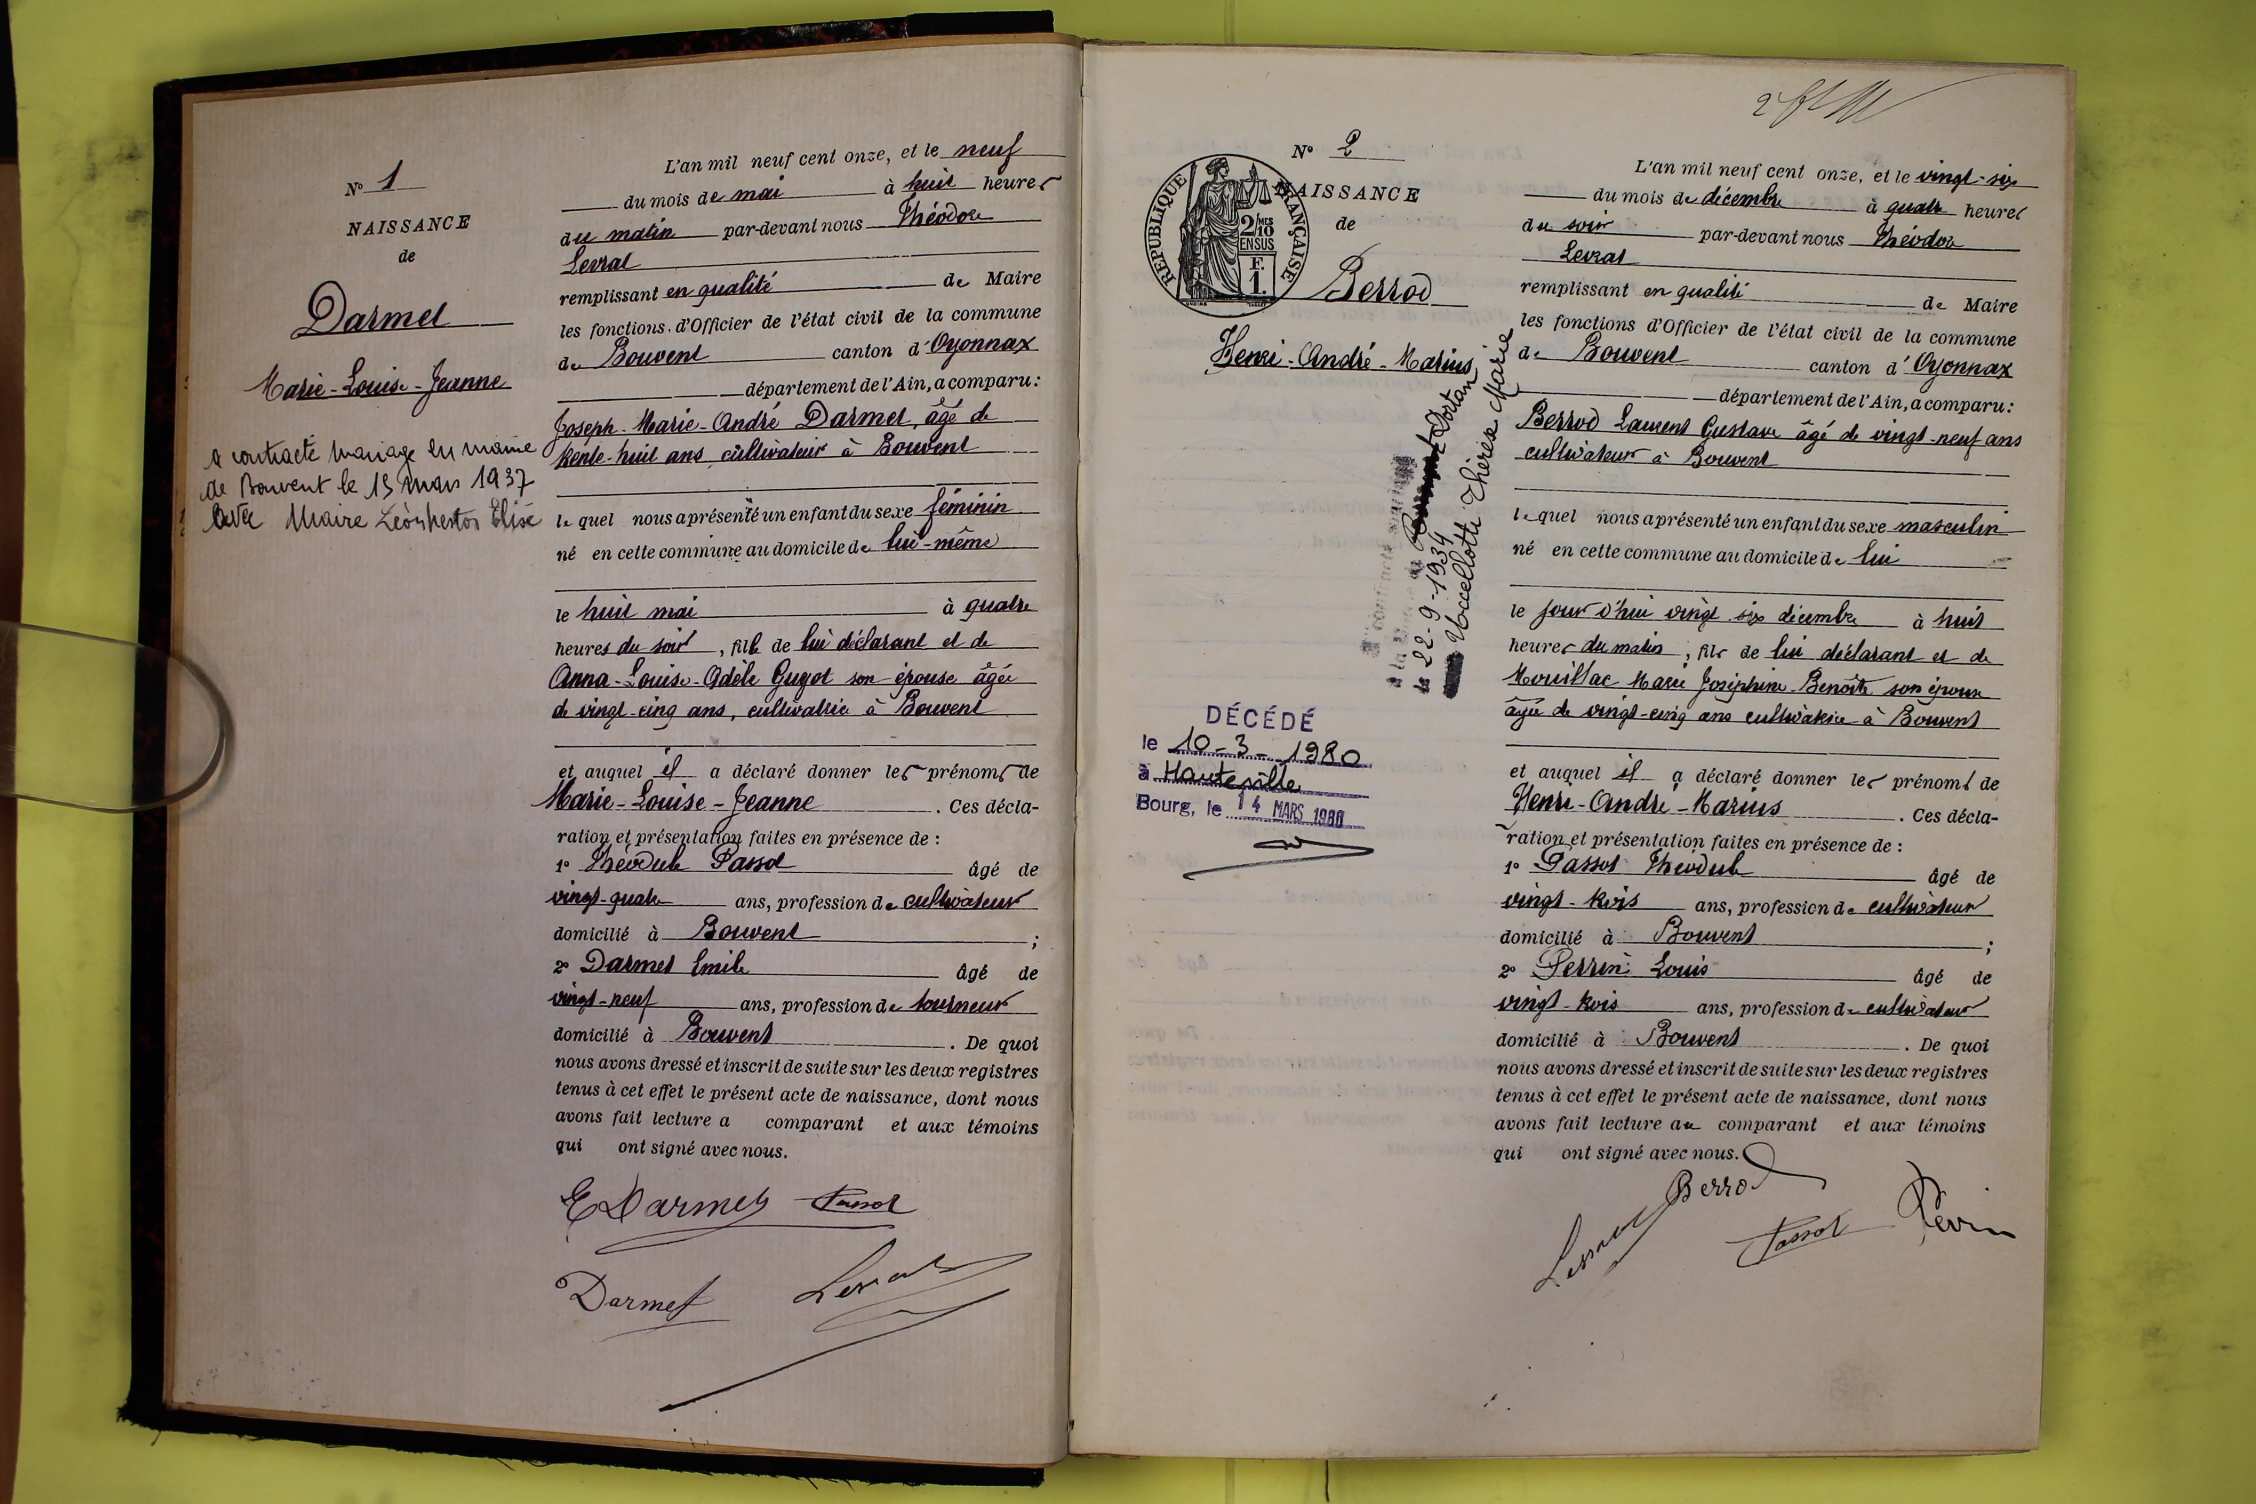 N° 1
NAISSANCE
de
Darmet
Marie-Louise-Jeanne
a contracté mariage en mairie
de Bouvent le 13 mars 1937
avec Maire Élisé
L'an mil neuf cent onze, et le neuf
du mois de mai à huit heures
du matin par-devant nous Théodore
Levrat
remplissant en qualité de Maire
les fonctions d'Officier de l'état civil de la commune
de Bouvent canton d'Oyonnax
département de l'Ain, a comparu:
Joseph-Marie-André Darmet, âgé de
trente-huit ans, cultivateur à Bouvent
lequel nous a présenté un enfant du sexe féminin
né en cette commune au domicile de lui-même
le huit mai à quatre
heures du soir, fille de lui déclarant et de
Anna-Louise-Adèle Guyot son épouse âgée
de vingt-cinq ans, cultivatrice à Bouvent
et auquel il a déclaré donner les prénoms de
Marie-Louise-Jeanne. Ces décla-
ration et présentation faites en présence de :
1° Théodule Passot âgé de
vingt-quatre ans, profession de cultivateur
domicilié à Bouvent ;
2° Darmet Emile âgé de
vingt-neuf ans, profession de tourneur
domicilié à Bouvent. De quoi
nous avons dressé et inscrit de suite sur les deux registres
tenus à cet effet le présent acte de naissance, dont nous
avons fait lecture a comparant et aux témoins
qui ont signé avec nous.
E Darmet Passot
Darmet Levrat
N° 2
NAISSANCE
de
RÉPUBLIQUE FRANÇAISE
2/10 MES
EN SUS
F.
1.
Berrod
Henri-André-Marius
A contracté mariage
à la Mairie de Dortan
le 22-9-1934
Uccellotti Thérèse Marie
DÉCÉDÉ
le 10-3-1980
à Hauteville
Bourg, le 14 MARS 1980
L'an mil neuf cent onze, et le vingt-six
du mois de décembre à quatre heures
du soir par-devant nous Théodore
Levrat
remplissant en qualité de Maire
les fonctions d'Officier de l'état civil de la commune
de Bouvent canton d'Oyonnax
département de l'Ain, a comparu:
Berrod Laurent Gustave âgé de vingt-neuf ans
cultivateur à Bouvent
lequel nous a présenté un enfant du sexe masculin
né en cette commune au domicile de lui
le jour d'hui vingt six décembre à huit
heures du matin, fils de lui déclarant et de
Mouillac Marie Joséphine Benoîte son épouse
âgée de vingt-cinq ans cultivatrice à Bouvent
et auquel il a déclaré donner les prénoms de
Henri-André-Marius. Ces décla-
ration et présentation faites en présence de :
1° Passot Théodule âgé de
vingt-trois ans, profession de cultivateur
domicilié à Bouvent ;
2° Perrin Louis âgé de
vingt-trois ans, profession de cultivateur
domicilié à Bouvent. De quoi
nous avons dressé et inscrit de suite sur les deux registres
tenus à cet effet le présent acte de naissance, dont nous
avons fait lecture au comparant et aux témoins
qui ont signé avec nous.
Berrod
Levrat Passot